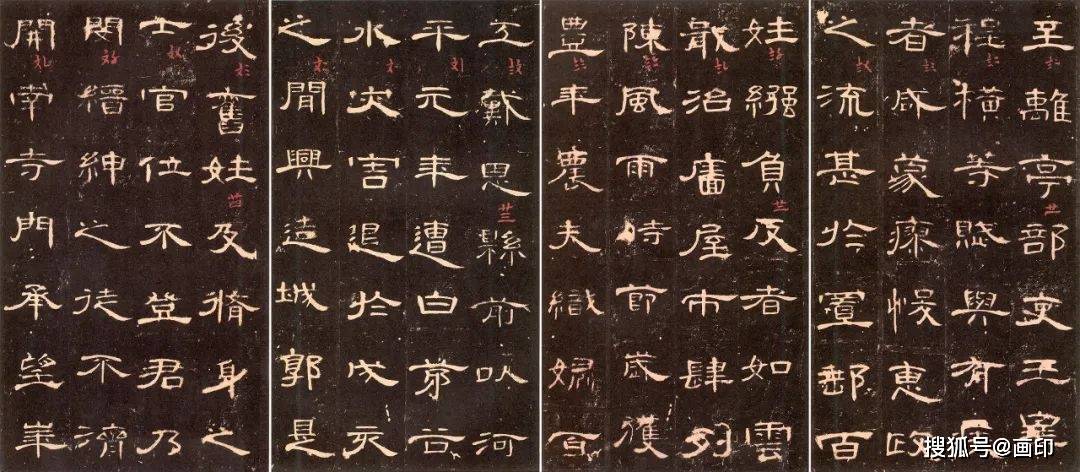 至離亭部吏王皋
程橫等賦與有疾
者咸蒙瘳悛惠政
之流甚於置郵百
姓繦負反者如雲
戢治廧屋市肆列
陳風雨時節歲獲
豐年農夫織婦百
工戴恩縣前以河
平元年遭白茅谷
水災害退於戊亥
之間興造城郭是
後舊姓及脩身之
士官位不登君乃
閔縉紳之徒不濟
開南寺門承望華
搜狐号@画印